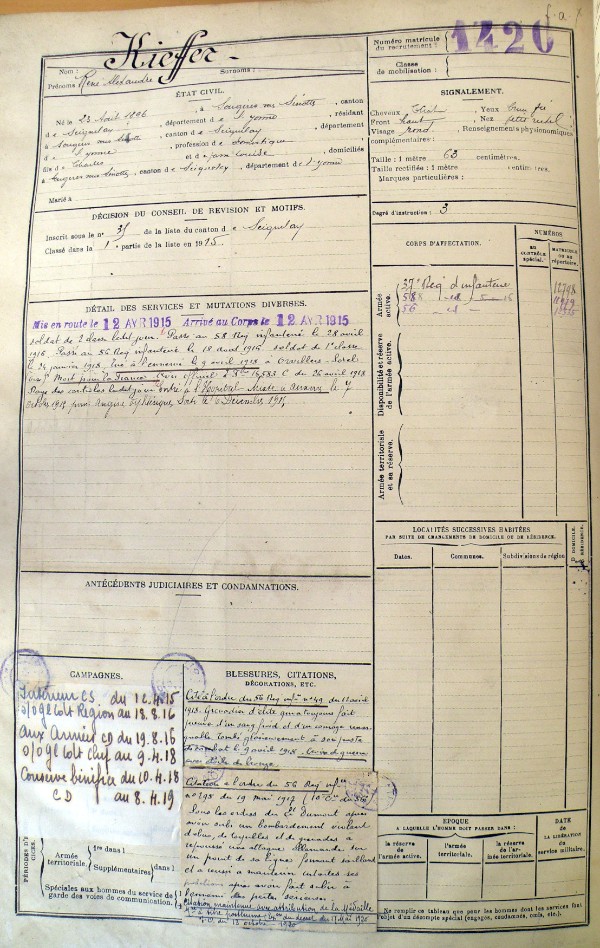 Kieffer
Nom :
Prénoms René Alexandre Surnoms :
ÉTAT CIVIL.
Né le 23 Août 1896, à Sougères sur Sinotte, canton
de Seignelay, département de l'Yonne, résidant
à Sougères sur Sinotte, canton de Seignelay, département
de l'Yonne, profession de domestique
fils de Charles et de, domiciliés
à Sougères sur Sinotte, canton de Seignelay, département de l'Yonne
Marié à
DÉCISION DU CONSEIL DE REVISION ET MOTIFS.
Inscrit sous le n° 35 de la liste du canton de Seignelay
Classé dans la 1e partie de la liste en 1915
DÉTAIL DES SERVICES ET MUTATIONS DIVERSES.
Mis en route le 12 AVR 1915 Arrivé au Corps le 12 AVR 1915
soldat de 2e classe ledit jour. Passé au 58 Reg infanterie le 28 avril
1916. Passé au 56 Reg infanterie le 18 août 1916, soldat de 1e classe
le 24 janvier 1918. tué à l'ennemi le 9 avril 1918 à
Mort pour la France Avis officiel 16,583 C du 26 avril 1918
Rayé des contrôles ledit jour. Entré à l'Hôpital Mixte le 7
Octobre 1915 pour Angine. Sorti le Décembre 1915
ANTÉCÉDENTS JUDICIAIRES ET CONDAMNATIONS.
CAMPAGNES.
Intérieur CS du 12.4.15
au 18.8.16
aux Armées CD du 19.8.16
au 9.4.18
Conserve bénéfice du 10.4.18
CD au 8.4.19
PÉRIODES D'EXERCICES.
Armée territoriale.
1re dans l
Supplémentaires dans l
Spéciales aux hommes du service de garde des voies de communication.
BLESSURES, CITATIONS,
DÉCORATIONS, ETC.
Cité à l'ordre du 56 Reg infie n° 49 du 12 avril
1918. Grenadier d'élite qui a toujours fait
preuve d'un sang froid et d'un courage
Tombé glorieusement à son poste
de combat le 9 avril 1918. Croix de guerre
avec étoile de bronze
Citation à l'ordre du 56 Reg infie
n° 298 du 19 mai 1917
Sous les ordres du Lt Dumont après
avoir subi un bombardement violent
d'obus, de torpilles et de grenades a
repoussé une attaque Allemande sur
un point de la ligne formant saillant
et a réussi à maintenir intactes ses
positions après avoir fait subir à
l'ennemi des pertes
Citation maintenue avec attribution de la Médaille
à titre posthume du décret du 17 Mai 1920
J.O. du 13 octobre 1920
f.a.
Numéro matricule du recrutement : 1420
Classe de mobilisation :
SIGNALEMENT.
Cheveux Chat, Yeux
Front haut, Nez
Visage rond, Renseignements physionomiques
complémentaires :
Taille : 1 mètre 63 centimètres.
Taille rectifiée : 1 mètre centimètres.
Marques particulières :
Degré d'instruction : 3
CORPS D'AFFECTATION.
NUMÉROS
AU CONTRÔLE spécial.
MATRICULES OU AU répertoire.
Armée active.
37e Reg d'infanterie 12798
58 -d-
56 -d-
Disponibilité et réserve de l'armée active.
Armée territoriale et sa réserve.
LOCALITÉS SUCCESSIVES HABITÉES
PAR SUITE DE CHANGEMENTS DE DOMICILE OU DE RÉSIDENCE.
Dates. Communes. Subdivisions de région D. DOMICILE. R. RÉSIDENCE.
EPOQUE
A LAQUELLE L'HOMME DOIT PASSER DANS :
la réserve de l'armée active.
l'armée territoriale.
la réserve de l'armée territoriale.
DATE
DE LA LIBÉRATION du service militaire.
Ne remplir ce tableau que pour les hommes dont les services font l'objet d'un décompte spécial (engagés, exondamnés, omis, etc.).